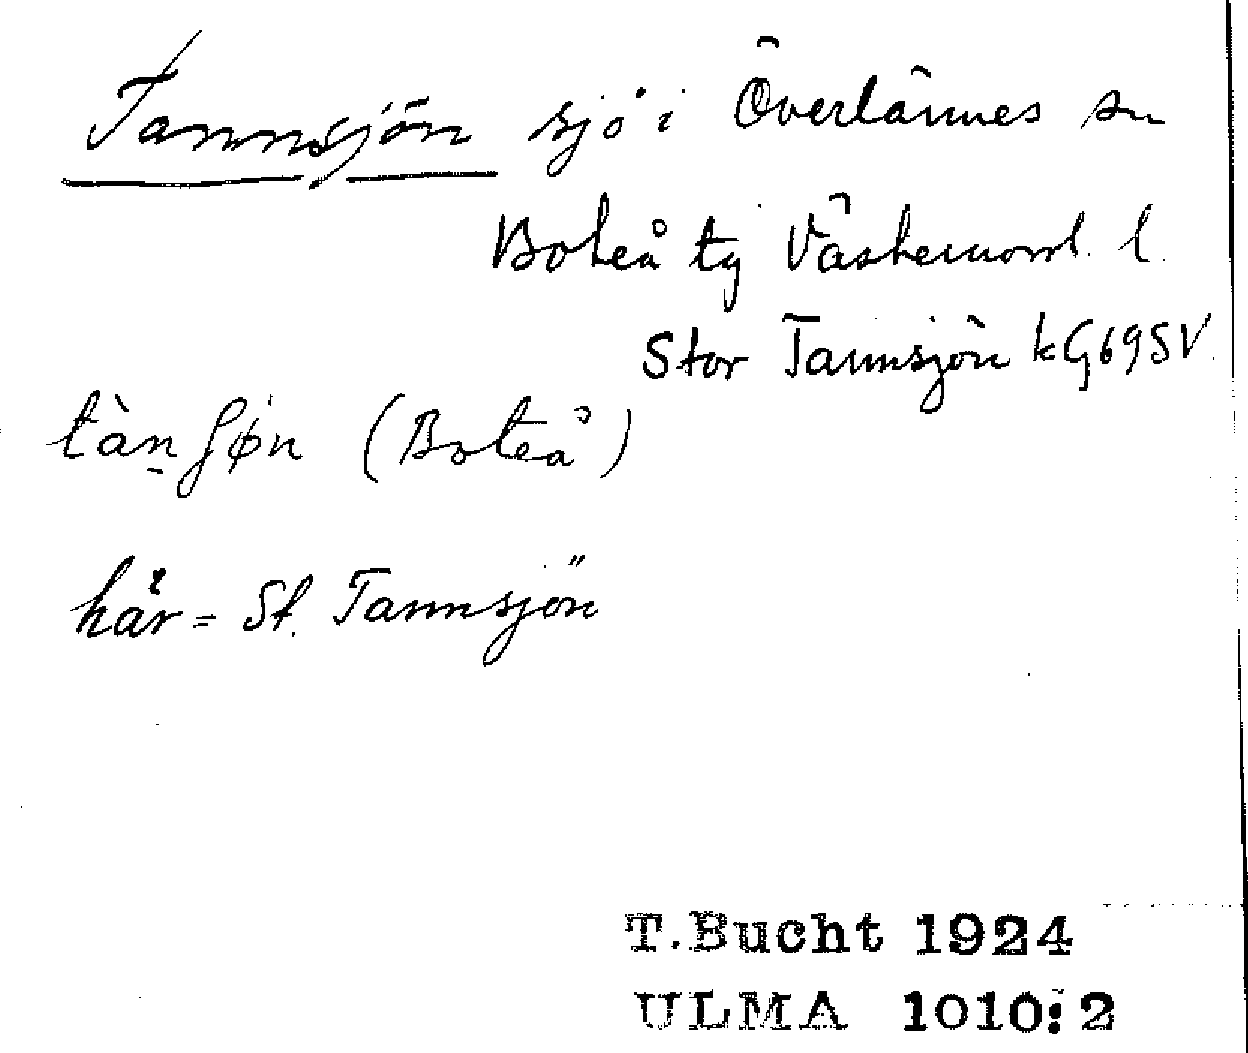 Tannsjön sjö i Överlännes sn
Boteå tg Västernorrl. l.
Stor Tannsjön kG69SV
tàn̠ʃøn (Boteå)
här = St. Tannsjön
T.Bucht 1924
ULMA 1010:2